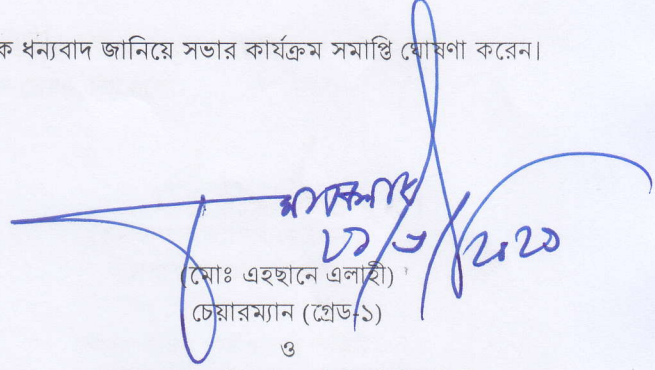 ক ধন্যবাদ জানিয়ে সভার কার্যক্রম সমাপ্তি ঘোষণা করেন।
(মোঃ এহছানে এলাহী)
চেয়ারম্যান (গ্রেড-১)
ও